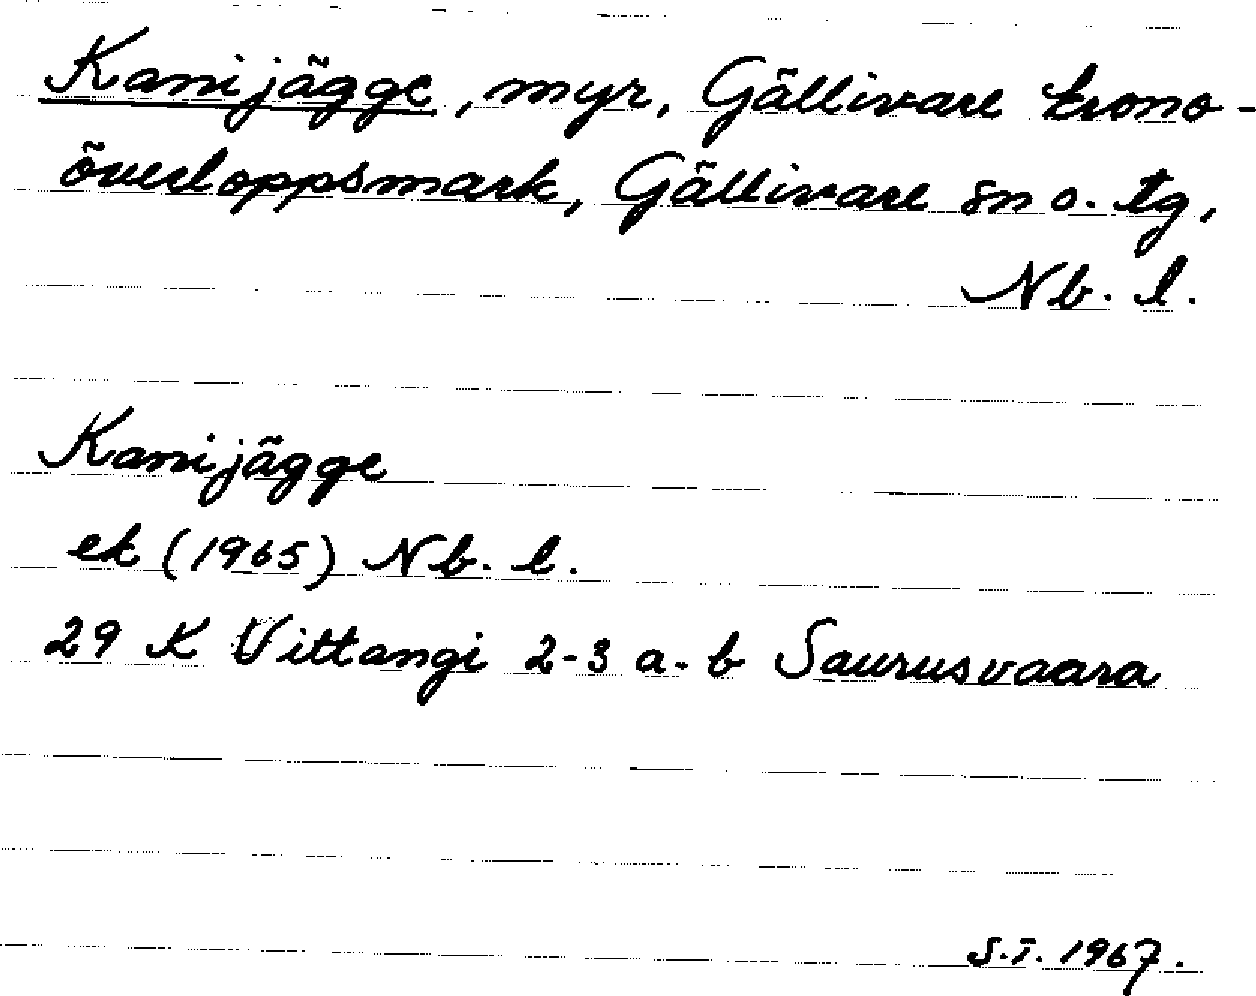 Kanijägge, myr, Gällivare krono-
överloppsmark, Gällivare sn o. tg,
Nb. l.
Kanijägge
ek (1965) Nb. l.
29 K Vittangi 2-3 a-b Saurusvaara
S.T. 1967.